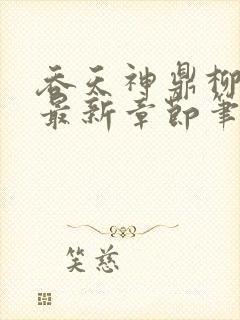 吞天神鼎柳
最新章節筆
笑慈